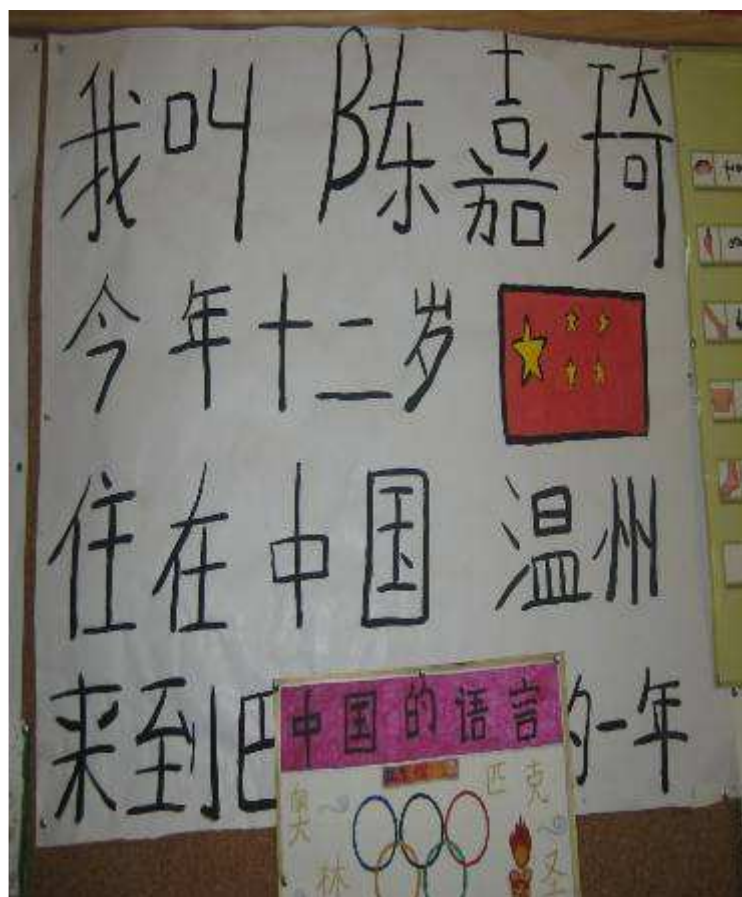 我叫 陈嘉琦
今年十二岁
住在中国 温州
来到巴
的一年
中国的语言
奥 匹克
林 圣